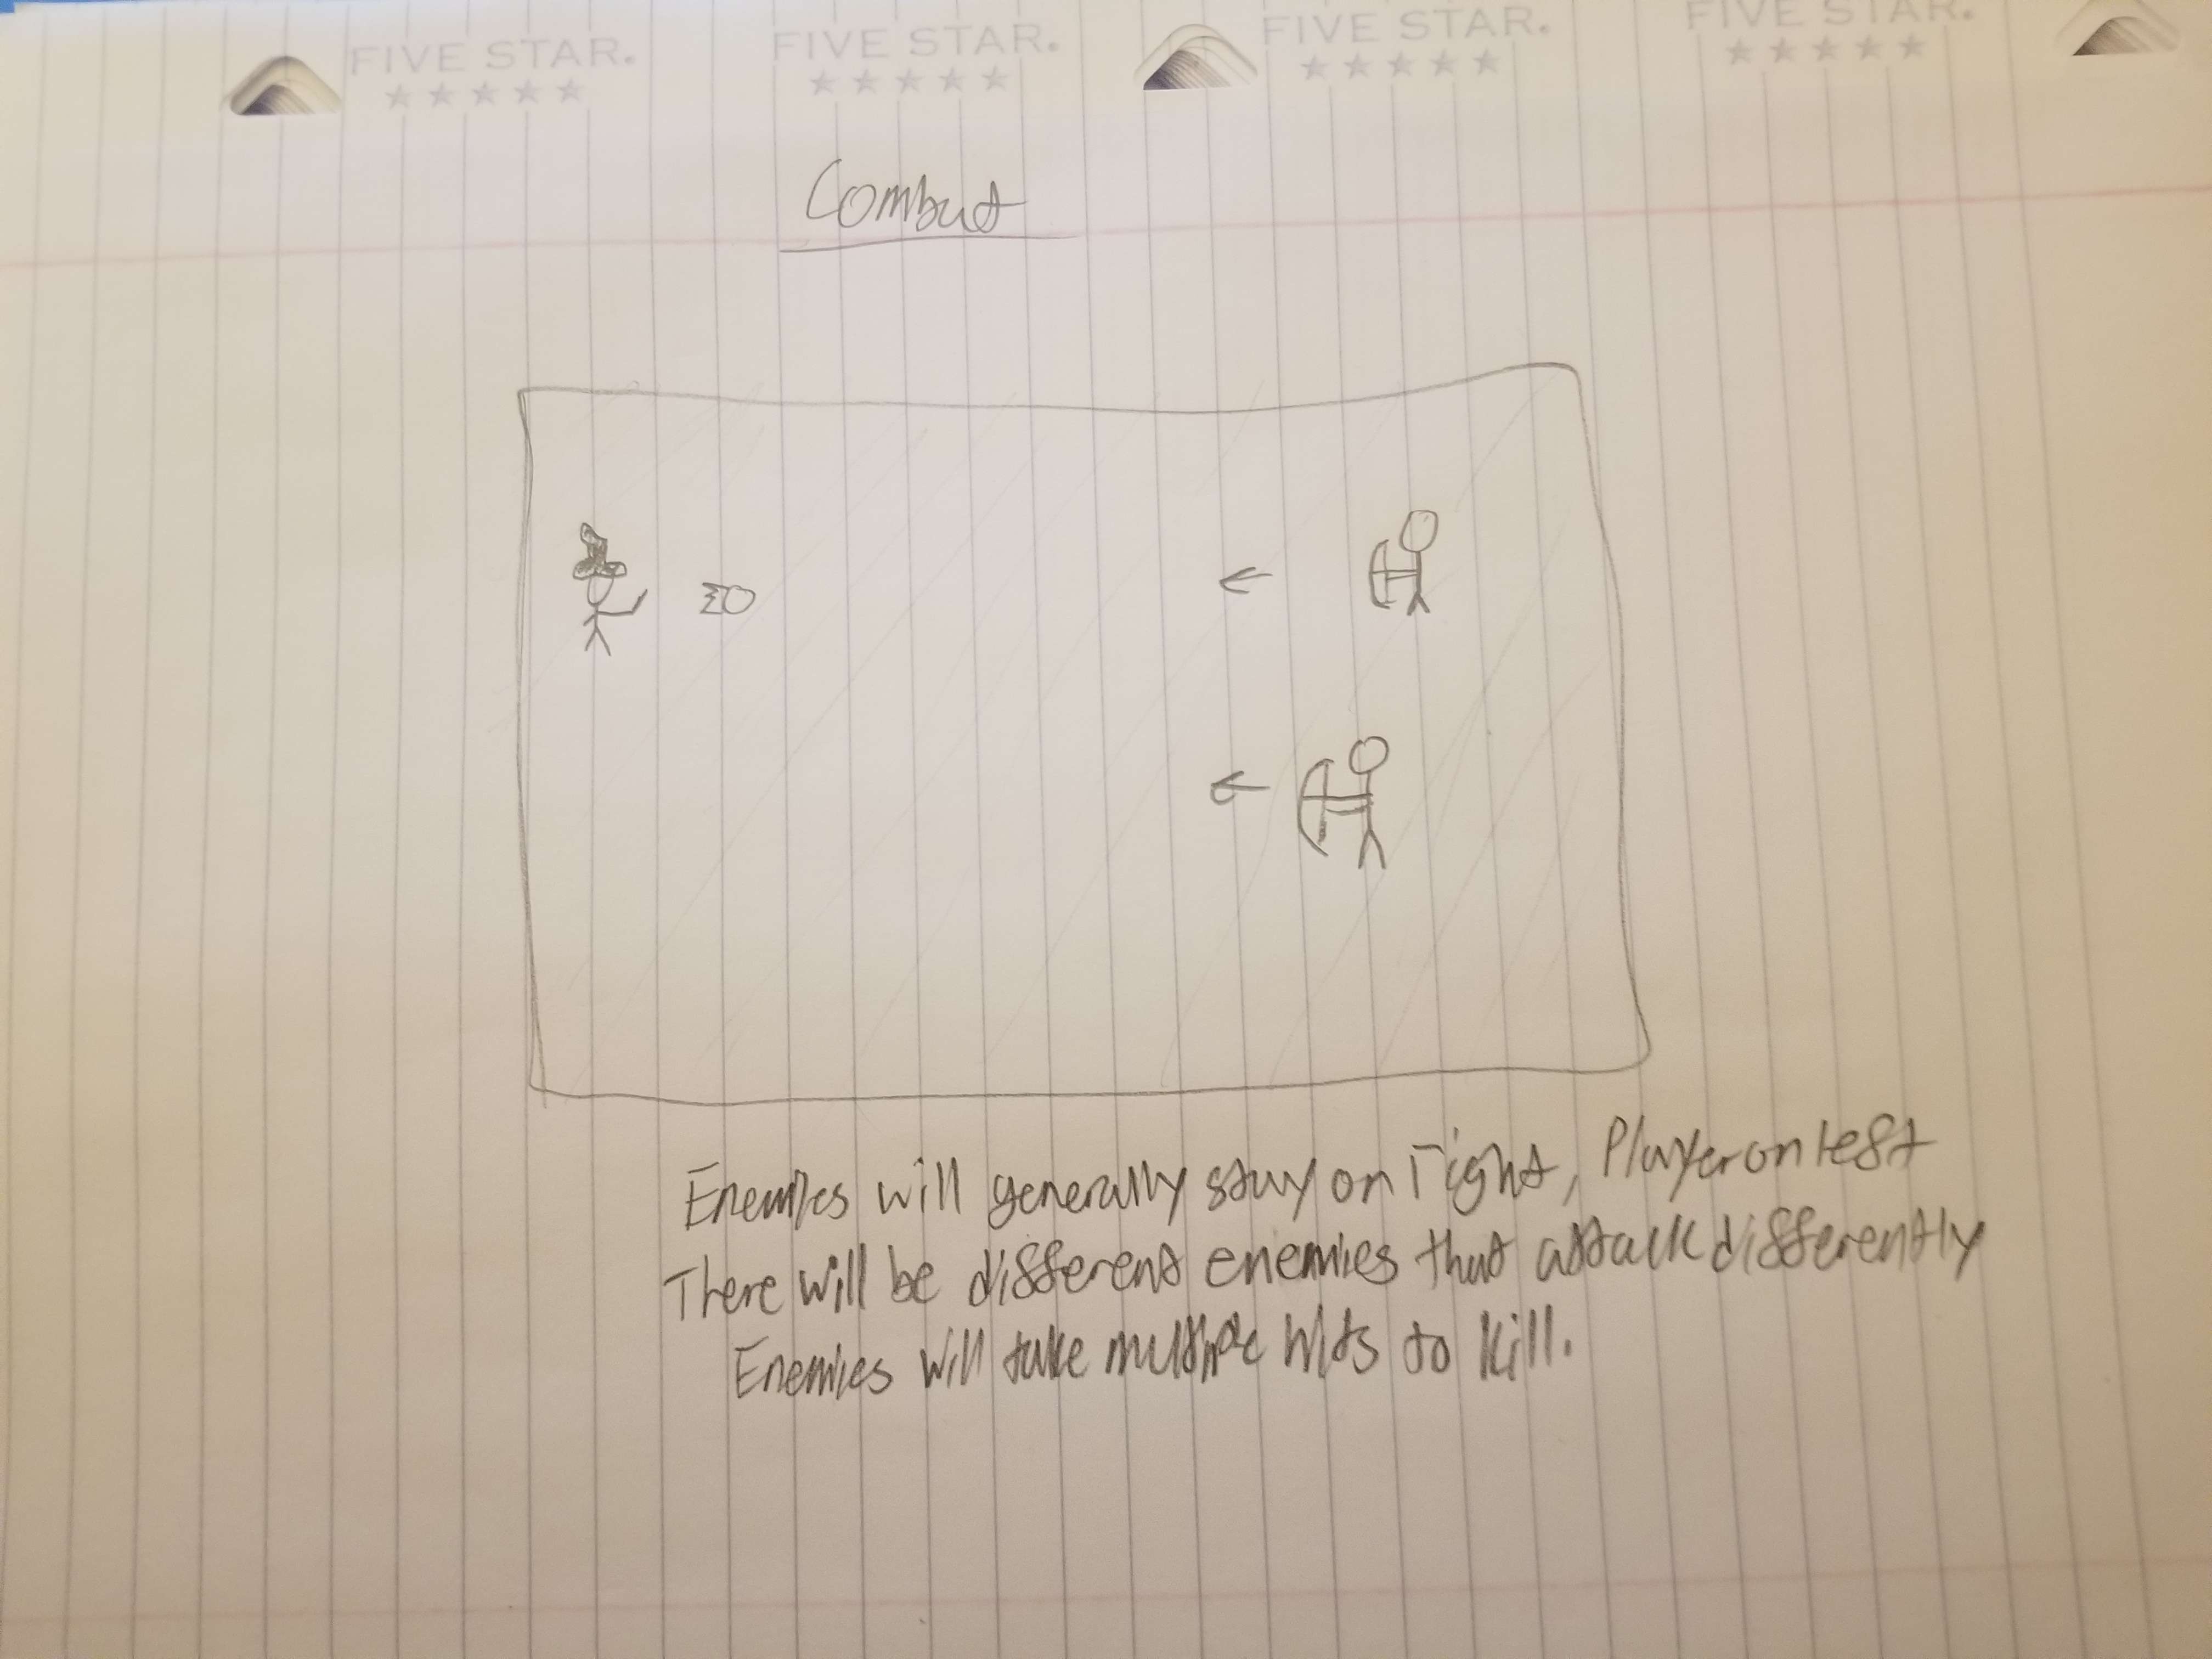 FIVE STAR. FIVE STAR. FIVE STAR. FIVE STAR.
Combat
Enemies will generally stay on right, Player on left
There will be different enemies that attack differently
Enemies will take multiple hits to kill.